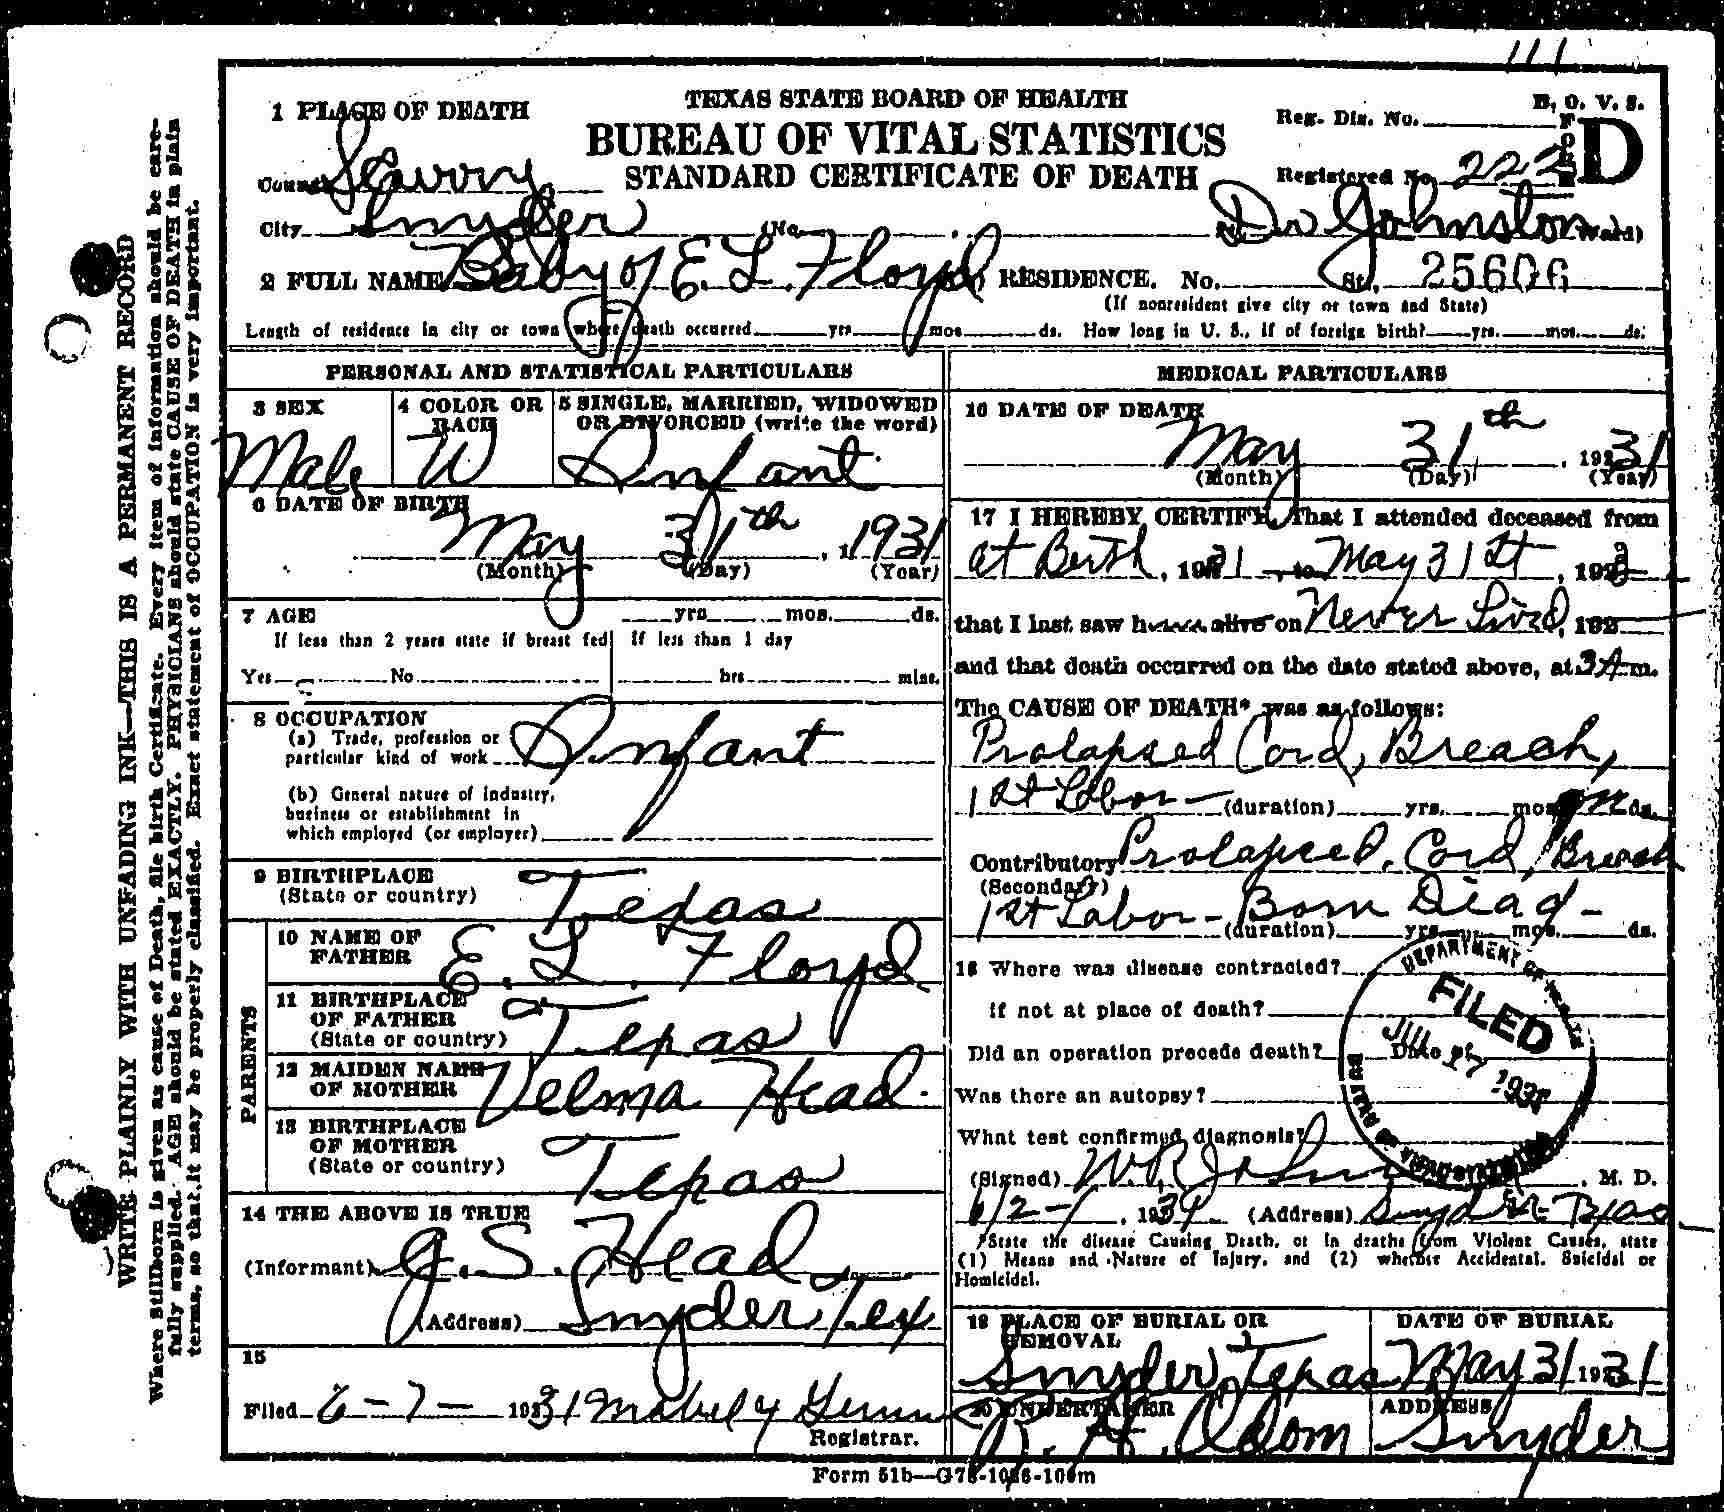 111
TEXAS STATE BOARD OF HEALTH
BUREAU OF VITAL STATISTICS
STANDARD CERTIFICATE OF DEATH
B. O. V. S.
FORM D
Reg. Dis. No.
Registered No. 222
1 PLACE OF DEATH
County Scurry
City Snyder (No. Dr Johnston Ward)
2 FULL NAME Baby of E. L. Floyd RESIDENCE. No. St. 25606
(If nonresident give city or town and State)
Length of residence in city or town where death occurred yrs. mos. ds. How long in U. S., if of foreign birth? yrs. mos. ds.
PERSONAL AND STATISTICAL PARTICULARS
3 SEX
Male
4 COLOR OR RACE
W
5 SINGLE, MARRIED, WIDOWED
OR DIVORCED (write the word)
Infant
6 DATE OF BIRTH
May 31th, 1931
(Month) (Day) (Year)
7 AGE yrs. mos. ds.
If less than 2 years state if breast fed If less than 1 day
Yes No hrs. mins.
8 OCCUPATION
(a) Trade, profession or
particular kind of work Infant
(b) General nature of industry,
business or establishment in
which employed (or employer)
9 BIRTHPLACE
(State or country) Texas
PARENTS
10 NAME OF
FATHER E. L. Floyd
11 BIRTHPLACE
OF FATHER
(State or country) Texas
12 MAIDEN NAME
OF MOTHER Velma Head
13 BIRTHPLACE
OF MOTHER
(State or country) Texas
14 THE ABOVE IS TRUE
(Informant) J. S. Head
(Address) Snyder, Tex
15
Filed 6-7-1931 Mabel Y
Registrar.
MEDICAL PARTICULARS
16 DATE OF DEATH
May 31th, 1931
(Month) (Day) (Year)
17 I HEREBY CERTIFY, That I attended deceased from
at Berth, 1931, to May 31st, 192
that I last saw h alive on Never Lived, 192
and that death occurred on the date stated above, at 3 A m.
The CAUSE OF DEATH* was as follows:
Prolapsed Cord, Breach,
1st Labor - (duration) yrs. mos. ds.
Contributory Prolapsed Cord, Breach
(Secondary)
1st Labor - Born Dead -
(duration) yrs. mos. ds.
18 Where was disease contracted?
if not at place of death?
Did an operation precede death? Date of
Was there an autopsy?
What test confirmed diagnosis?
(Signed) W. R. Johnston, M. D.
6/2-, 1931 (Address) Snyder Texas
*State the disease Causing Death, or in deaths from Violent Causes, state
(1) Means and Nature of Injury, and (2) whether Accidental, Suicidal or
Homicidal.
DEPARTMENT OF HEALTH
FILED
JUL 17 1931
BUREAU OF VITAL STATISTICS
19 PLACE OF BURIAL OR
REMOVAL
Snyder, Texas
DATE OF BURIAL
May 31 1931
20 UNDERTAKER
Odom
ADDRESS
Snyder
Form 51b—G75-1026-100m
WRITE PLAINLY WITH UNFADING INK—THIS IS A PERMANENT RECORD
Where Stillborn is given as cause of Death, file birth Certificate. Every item of information should be care-
fully supplied. AGE should be stated EXACTLY. PHYSICIANS should state CAUSE OF DEATH in plain
terms, so that it may be properly classified. Exact statement of OCCUPATION is very important.